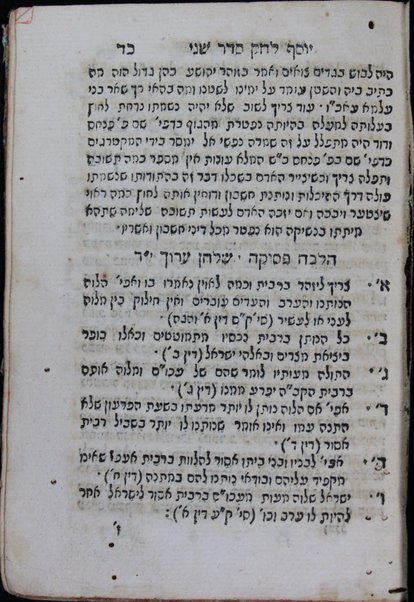 יוסף לחק סדר שני כד
היה לבוש בגדים צואים ואמר בזוהר יהושע כהן גדול הוה מה
כתיב ביה והשטן עומד על ימינו לשטנו ומה בהאי כך שאר בני
עלמא עאכ"ו · עוד צריך לשוב שלא יהיה נשמתו נדחת לחוץ
בעלותה למעלה בהיותה נפטרת מהגוף כדפי' שם פ' פנחס
ודוד היה מתפלל על זה שמרה נפשי אל ימסר בידי המקטרגים
כדפי' שם בפ' פנחס ב"ש המלא עונות אין מספר כמה תשובה
ותפלה צריך וכשיצייר האדם בשכלו דבר זה בהתודותו שנשמתו
עולה דרך ההיכלות ונותנת חשבון ודוחין אותה לחוץ כמה ראוי
שיצטער ויבכה ואם יזכה האדם לעשות תשובה שלימה שתהא
מיתתו בנשיקה הוא נפטר מכל דיני חשבון ואשריו ·
הלכה פסיקה · שלחן ערוך י"ד
א' · צריך ליזהר ברבית וכמה לאוין נאמרו בו ואפי' הלוה
הנותנו והערב והעדים עוברים ואין חילוק בין מלוה
לעני או לעשיר (סי' ק"ס דין א' והגה) ·
ב' · כל הנותן ברבית נכסיו מתמוטטים וכאלו כופר
ביציאת מצרים ובאלהי ישראל (דין ב') ·
ג' · התולה מעותיו לומר שהם של עכו"ם ומלוה אותם
ברבית הקב"ה יפרע ממנו (דין ג') ·
ד' · אפי' אם הלוה נותן לו יותר מדעתו בשעת הפרעון שלא
התנה עמו ואינו אומר שנותנו לו יותר בשביל רבית
אסור (דין ד') ·
ה' · אפי' לבניו ובני ביתו אסור להלוות ברבית אעפ"י שאינו
מקפיד עליהם ובודאי נותנו להם במתנה (דין ח') ·
ו' · ישראל שלוה מעות מעכו"ם ברבית אסור לישראל אחר
להיות לו ערב וכו' (סי' ק"ע דין א') :
ז'